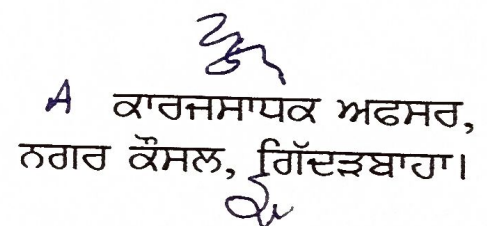 A ਕਾਰਜਸਾਧਕ ਅਫਸਰ,
ਨਗਰ ਕੌਂਸਲ, ਗਿੱਦੜਬਾਹਾ।